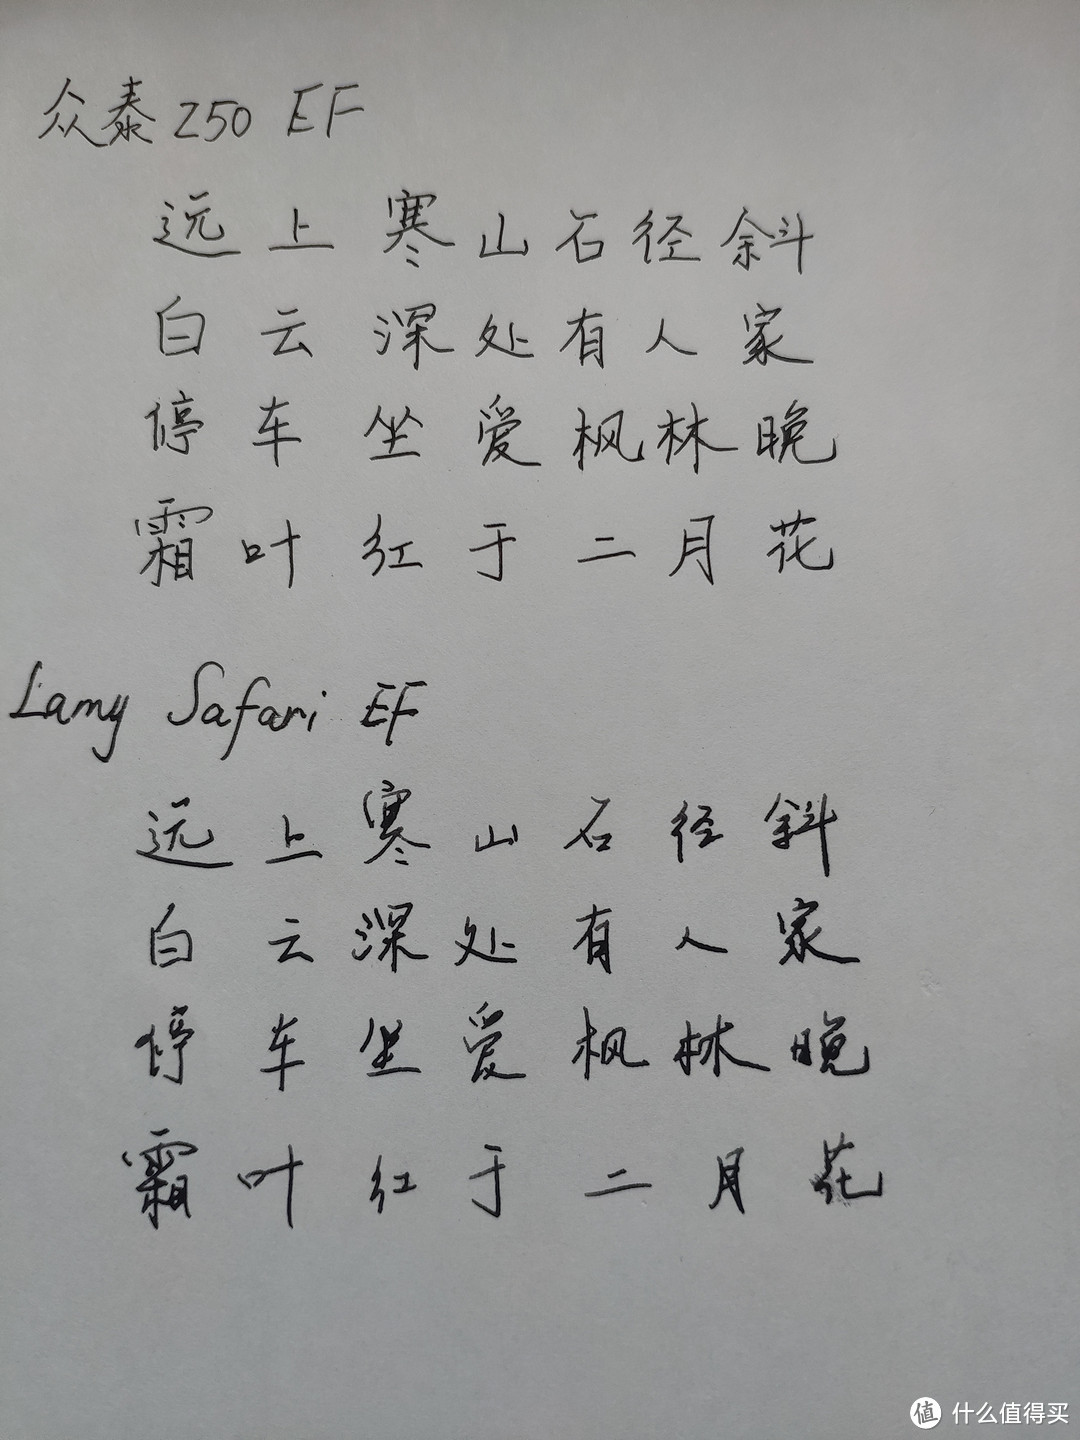 众泰 Z50 EF
远上寒山石径斜
白云深处有人家
停车坐爱枫林晚
霜叶红于二月花
Lamy Safari EF
远上寒山石径斜
白云深处有人家
停车坐爱枫林晚
霜叶红于二月花
值 什么值得买